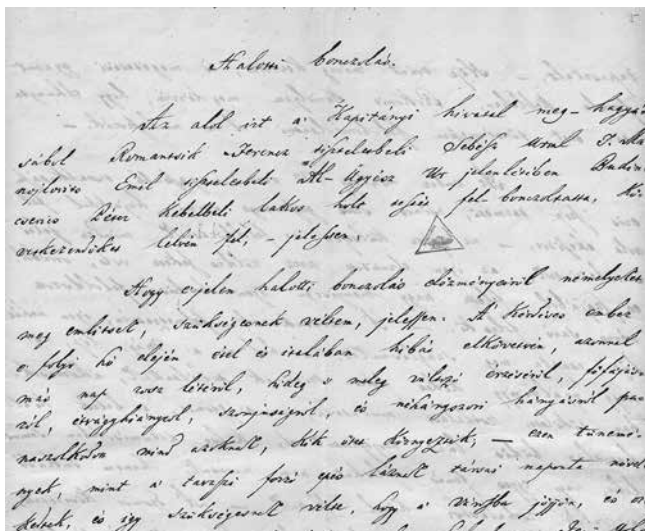 Halotti bonczolás.
Az alol irt a' Kapitányi hivatal meg-hagyá
sábol Romantsik Ferencz tiszteletbeli Sebész Urnal J. Ma
nojlovits Emil tiszteletbeli Al-Ügyész Ur jelenlétiben Budin
csevics Lázár kebelbeli lakos holt testét fel-bonczoltassa, Kö
vetkezendőket lelvén fel, – jelessen:
Hogy e jelen halotti bonczolás előzményeiről némelyeket
meg említsek, szükségesnek véltem, jelessen. A' Kórdéses ember
e folyó hó elején étel és italában hibás elkövetvén, azonnal
más nap rosz létéről, hideg s meleg váltszó érzéséről, főfájásá
ról, étvágyhiányrol, szomjuságról, és néhányszori hányásról pa
naszolkodva mind azoknak, kik őtet környezték, – ezen tünemé
nyek, mint a' tavaszi forró epés láznak társai naponta növe
kedtek, és igy szükségesnek vélte, hogy a' városba jöjjön, és or